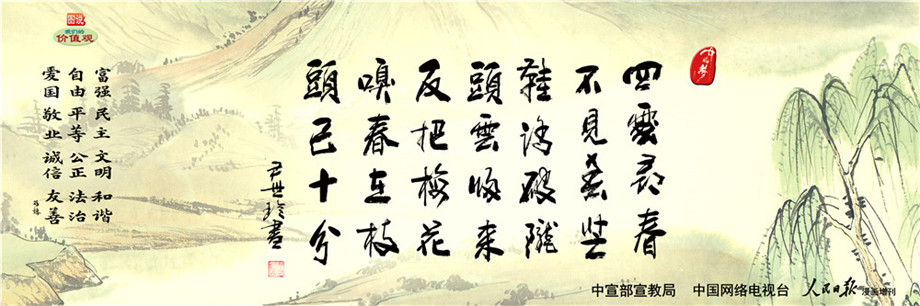 中国梦
四處尋春
不見春芒
鞋踏破隴
頭雲歸來
反把梅花
嗅春在枝
頭已十分
尹世玲書
图说
我们的
价值观
富强 民主 文明 和谐
自由 平等 公正 法治
爱国 敬业 诚信 友善
中宣部宣教局 中国网络电视台 人民日报 漫画增刊